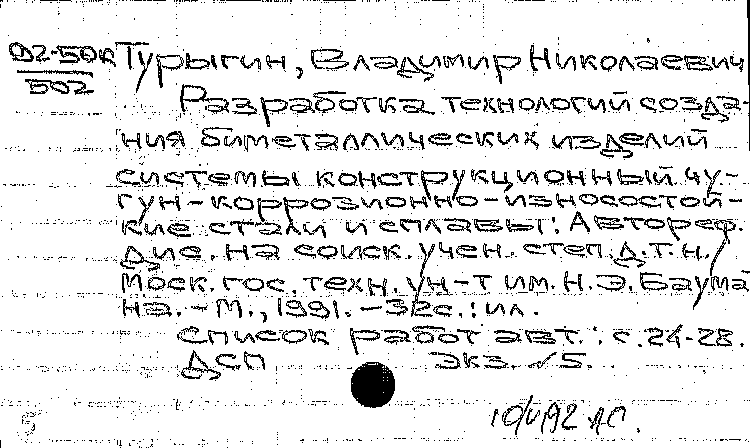 Д2-50к Турыгин, Владимир Николаевич
502
Разработка технологий созда-
ния биметаллических изделий
системы конструкционный чу-
гун-коррозионно-износостой-
кие стали и сплавы: Автореф.
дис. на соиск. учен. степ. д.т.н./
Моск. гос. техн. ун-т им. Н.Э.Баума
на. - М., 1991. - 32с.: ил.
Список работ авт.: с. 24-28.
ДСП экз. ✓ 5.